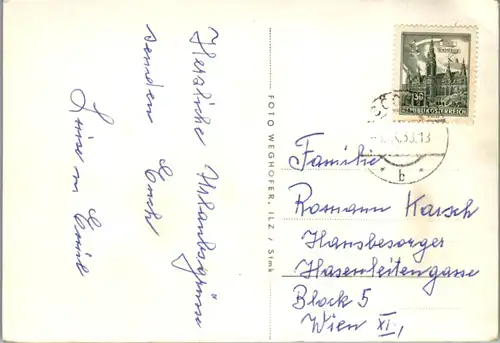 Herzliche Urlaubsgrüsse
senden Euch
Luise u Emil
FOTO WEGHOFER, ILZ / Stmk
REPUBLIK ÖSTERREICH
b
Familie
Romann Karsch
Hansbesorger
Hasenleitengasse
Block 5
Wien XI,